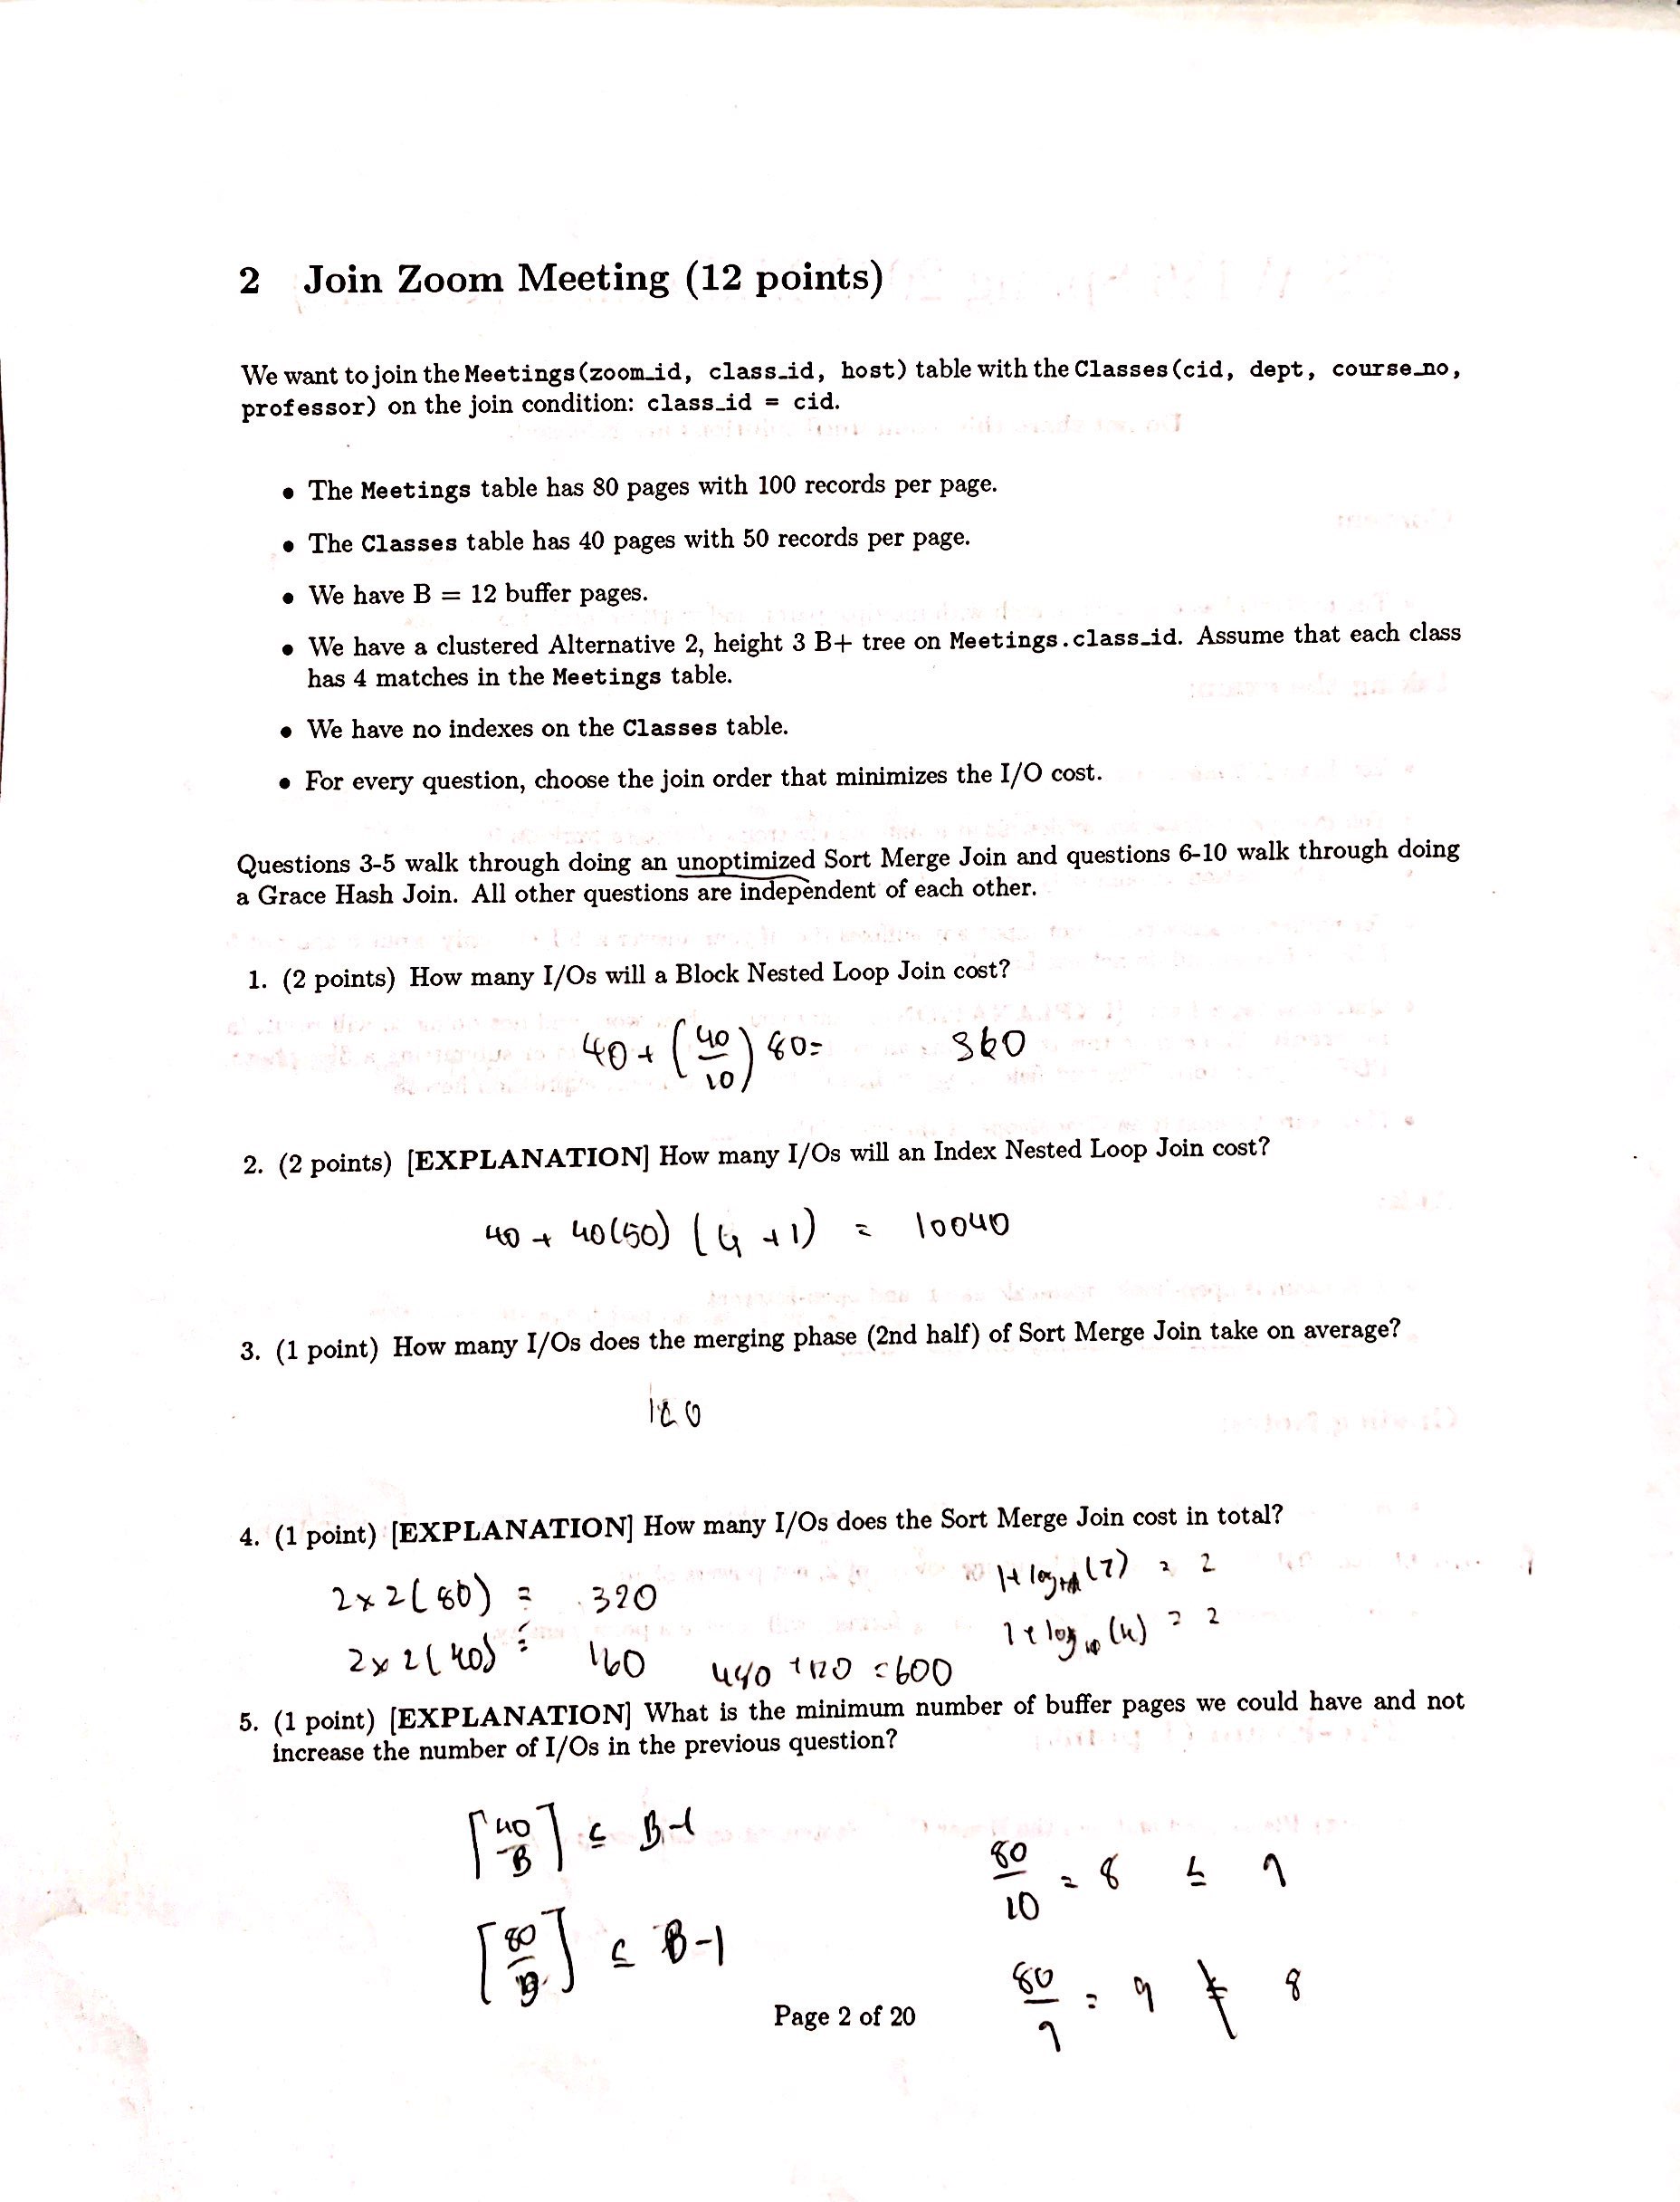 2 Join Zoom Meeting (12 points)
We want to join the Meetings(zoom_id, class_id, host) table with the Classes(cid, dept, course_no,
professor) on the join condition: class_id = cid.
• The Meetings table has 80 pages with 100 records per page.
• The Classes table has 40 pages with 50 records per page.
• We have B = 12 buffer pages.
• We have a clustered Alternative 2, height 3 B+ tree on Meetings.class_id. Assume that each class
has 4 matches in the Meetings table.
• We have no indexes on the Classes table.
• For every question, choose the join order that minimizes the I/O cost.
Questions 3-5 walk through doing an unoptimized Sort Merge Join and questions 6-10 walk through doing
a Grace Hash Join. All other questions are independent of each other.
1. (2 points) How many I/Os will a Block Nested Loop Join cost?
40 + (40/10) 80 = 360
2. (2 points) [EXPLANATION] How many I/Os will an Index Nested Loop Join cost?
40 + 40(50) (4 + 1) = 10040
3. (1 point) How many I/Os does the merging phase (2nd half) of Sort Merge Join take on average?
120
4. (1 point) [EXPLANATION] How many I/Os does the Sort Merge Join cost in total?
2 x 2(80) = 320 1 + log (7) = 2
2 x 2(40) = 160 480 + 120 = 600 1 + log (4) = 2
5. (1 point) [EXPLANATION] What is the minimum number of buffer pages we could have and not
increase the number of I/Os in the previous question?
⌈40/B⌉ ≤ B-1
80/10 = 8 ≤ 9
⌈80/B⌉ ≤ B-1
80/9 = 9 ≰ 8
Page 2 of 20